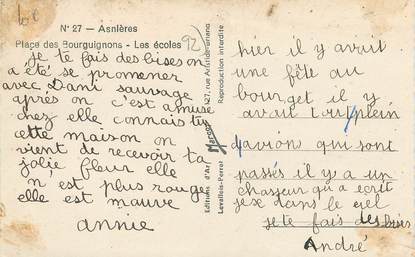 N° 27 — Asnières
Place des Bourguignons - Les écoles
92)
je te fais des bises on
a été se promener
avec Dani sauvage
après on c'est amuse
chez elle connais tu
cette maison on
vient de recevoir ta
jolie fleur elle
n'est plus rouge
elle est mauve
annie
Editions d'Art
27, rue Aristide-Briand
Levallois-Perret
Reproduction interdite
hier il y avait
une fête au
bourget il y
avait tut plein
d'avion qui sont
passés il y a un
chasseur qu a ecrit
dans le ciel
je te fais des bises
André